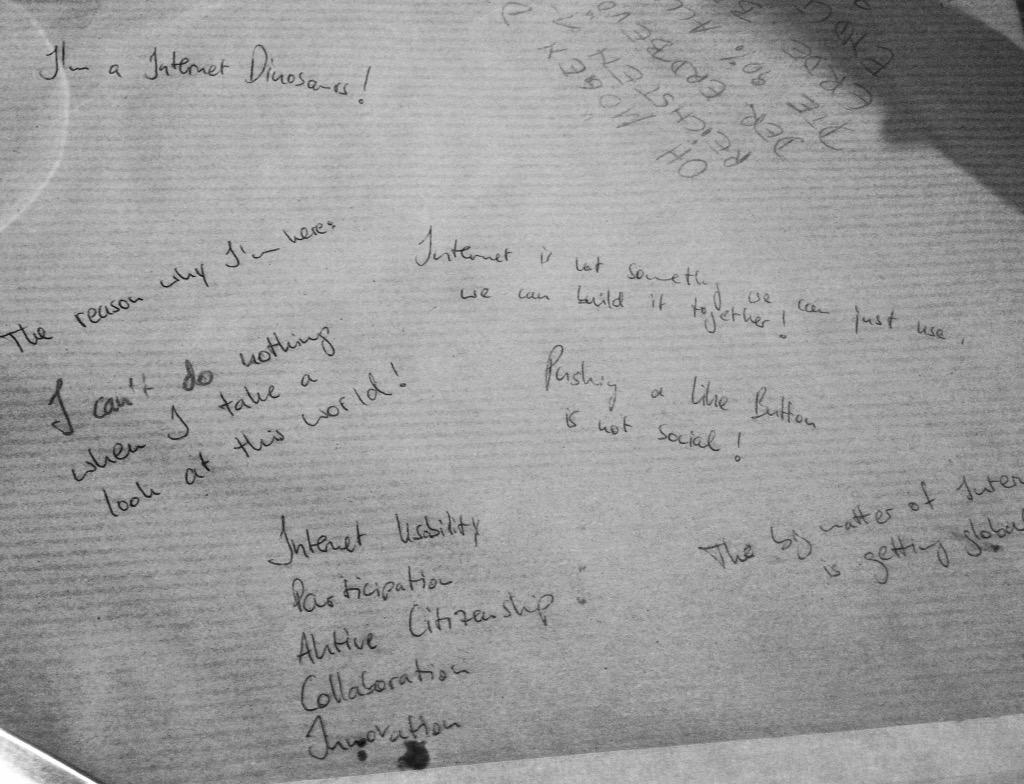 I'm a Internet Dinosaurs!
The reason why I'm here:
I can't do nothing
when I take a
look at this world!
Internet is not something we can just use,
we can build it together!
Pushing a like Button
is not social!
The big matter of
is getting global
Internet Usability
Participation
Aktive Citizenship
Collaboration
Innovation
OH
REICHSTEN
DER ERDBEVÖ
DIE 90% ALL
ERDE